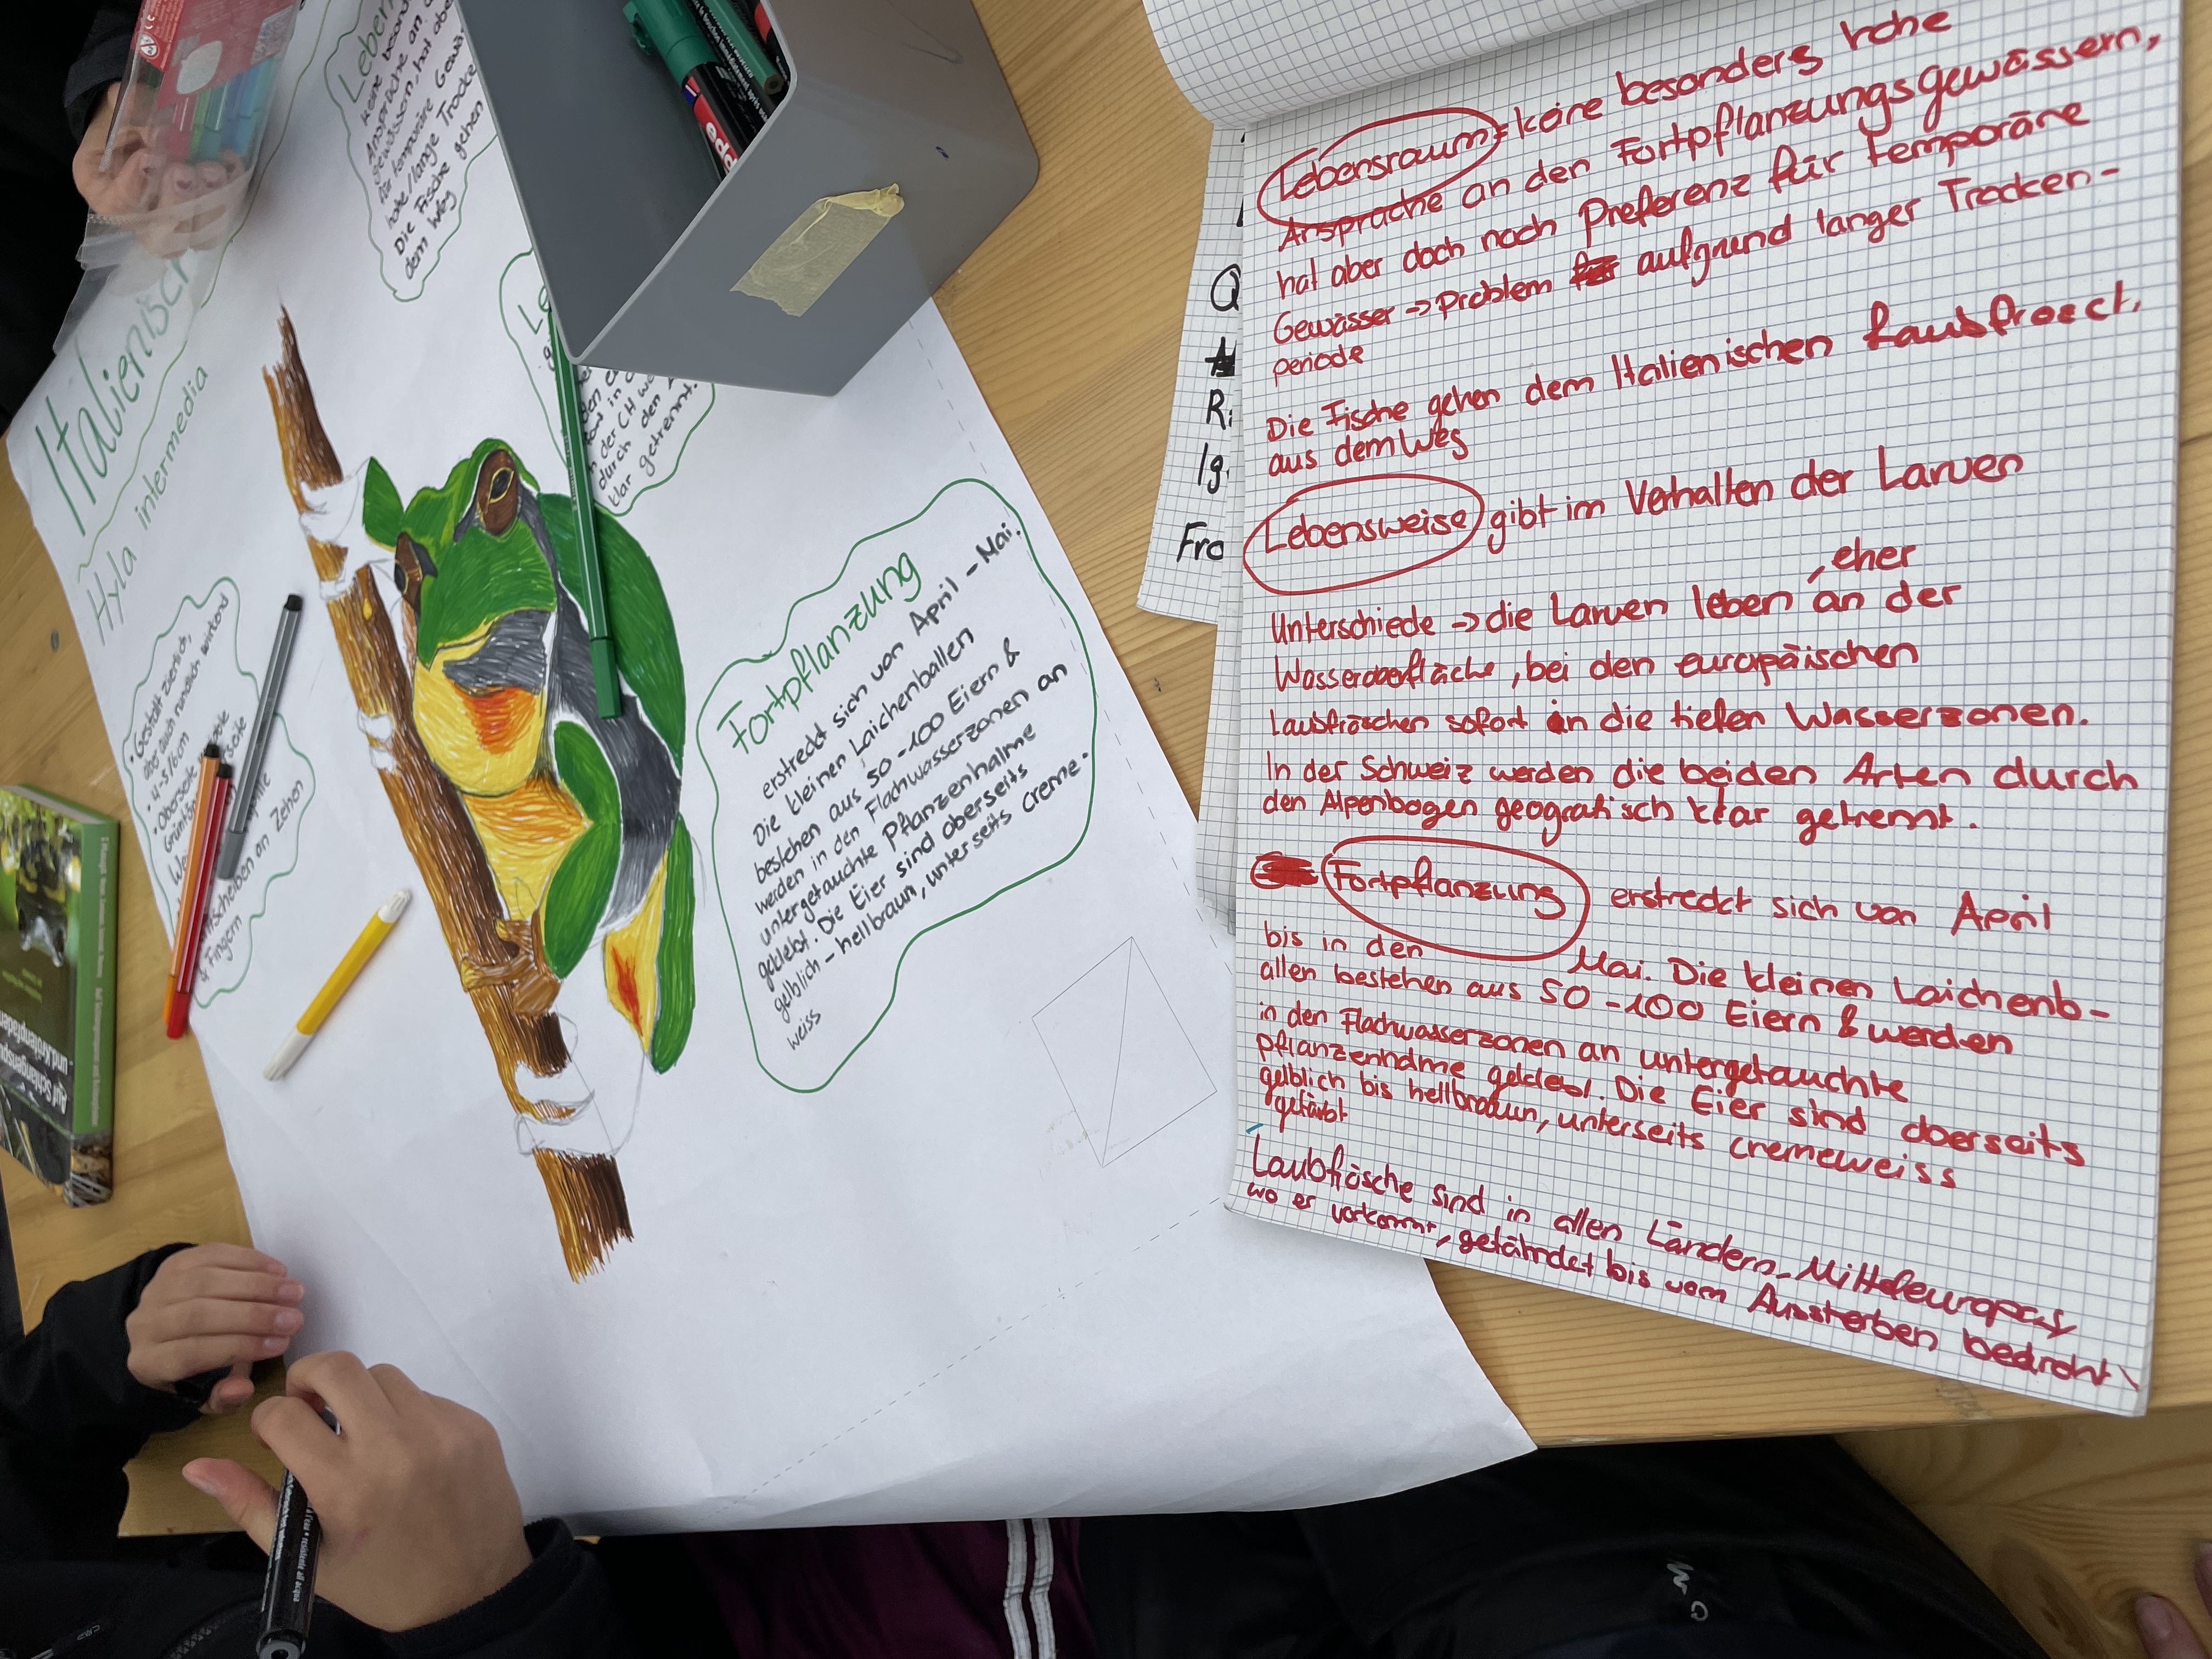 Italienisch
Hyla intermedia
keine besond
Ansprüche an
gewässern, hat abe
für temporäre Gewä
hohe/lange Trocke
Die Fische gehen
dem Weg
Le
n der CH we
durch den
klar getrennt.
• Gestalt zierlich,
aber auch rundlich wirkend
• 4-5/6cm
• Oberseite
Haftscheiben an Zehen
& Fingern
Fortpflanzung
erstreckt sich von April - Mai.
Die kleinen Laichenballen
bestehen aus 50-100 Eiern &
werden in den Flachwasserzonen an
untergetauchte Pflanzenhalme
geklebt. Die Eier sind oberseits
gelblich - hellbraun, unterseits creme-
weiss
Auf Schlangenspuren
und Krötenpfaden
edd
Q
R
Ig
Fro
Lebensraum = keine besonders hohe
Ansprüche an den Fortpflanzungsgewässern,
hat aber doch noch Preferenz für temporäre
Gewässer -> Problem aufgrund langer Trocken-
periode
Die Fische gehen dem Italienischen Laubfrosch
aus dem Weg
Lebensweise gibt im Verhalten der Larven
Unterschiede -> die Larven leben, eher an der
Wasseroberfläche, bei den europäischen
Laubfröschen sofort in die tiefen Wasserzonen.
In der Schweiz werden die beiden Arten durch
den Alpenbogen geografisch klar getrennt.
Fortpflanzung erstreckt sich von April
bis in den Mai. Die kleinen Laichenb-
allen bestehen aus 50-100 Eiern & werden
in den Flachwasserzonen an untergetauchte
Pflanzenhalme geklebt. Die Eier sind oberseits
gelblich bis hellbraun, unterseits cremeweiss
gefärbt
Laubfrösche sind in allen Ländern Mitteleuropas
wo er vorkommt, gefährdet bis vom Aussterben bedroht